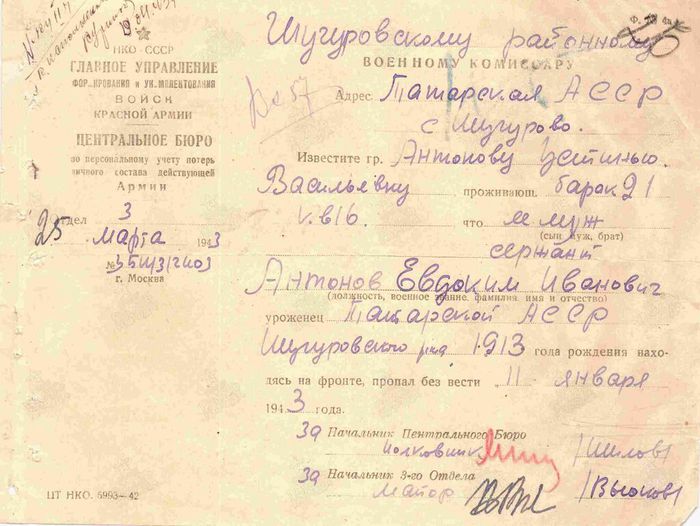 НКО-СССР
ГЛАВНОЕ УПРАВЛЕНИЕ
ФОРМИРОВАНИЯ И УКОМПЛЕКТОВАНИЯ
ВОЙСК
КРАСНОЙ АРМИИ
ЦЕНТРАЛЬНОЕ БЮРО
по персональному учету потерь
личного состава действующей
Армии
Отдел 3
25 марта 1943
г. Москва
ЦТ НКО. 6993—42
Шугуровскому районному
ВОЕННОМУ КОМИССАРУ
Адрес Татарская АССР
с Шугурово.
Известите гр. Антонову Устинью
Васильевну проживающ. барак 21
кв 16 что муж
(сын, муж, брат)
сержант
Антонов Евдоким Иванович
(должность, военное звание, фамилия, имя и отчество)
уроженец Татарской АССР
Шугуровского р-на 1913 года рождения нахо-
дясь на фронте, пропал без вести 11 января
1943 года.
За Начальник Центрального Бюро
полковник /Шилов/
За Начальник 3-го Отдела
майор